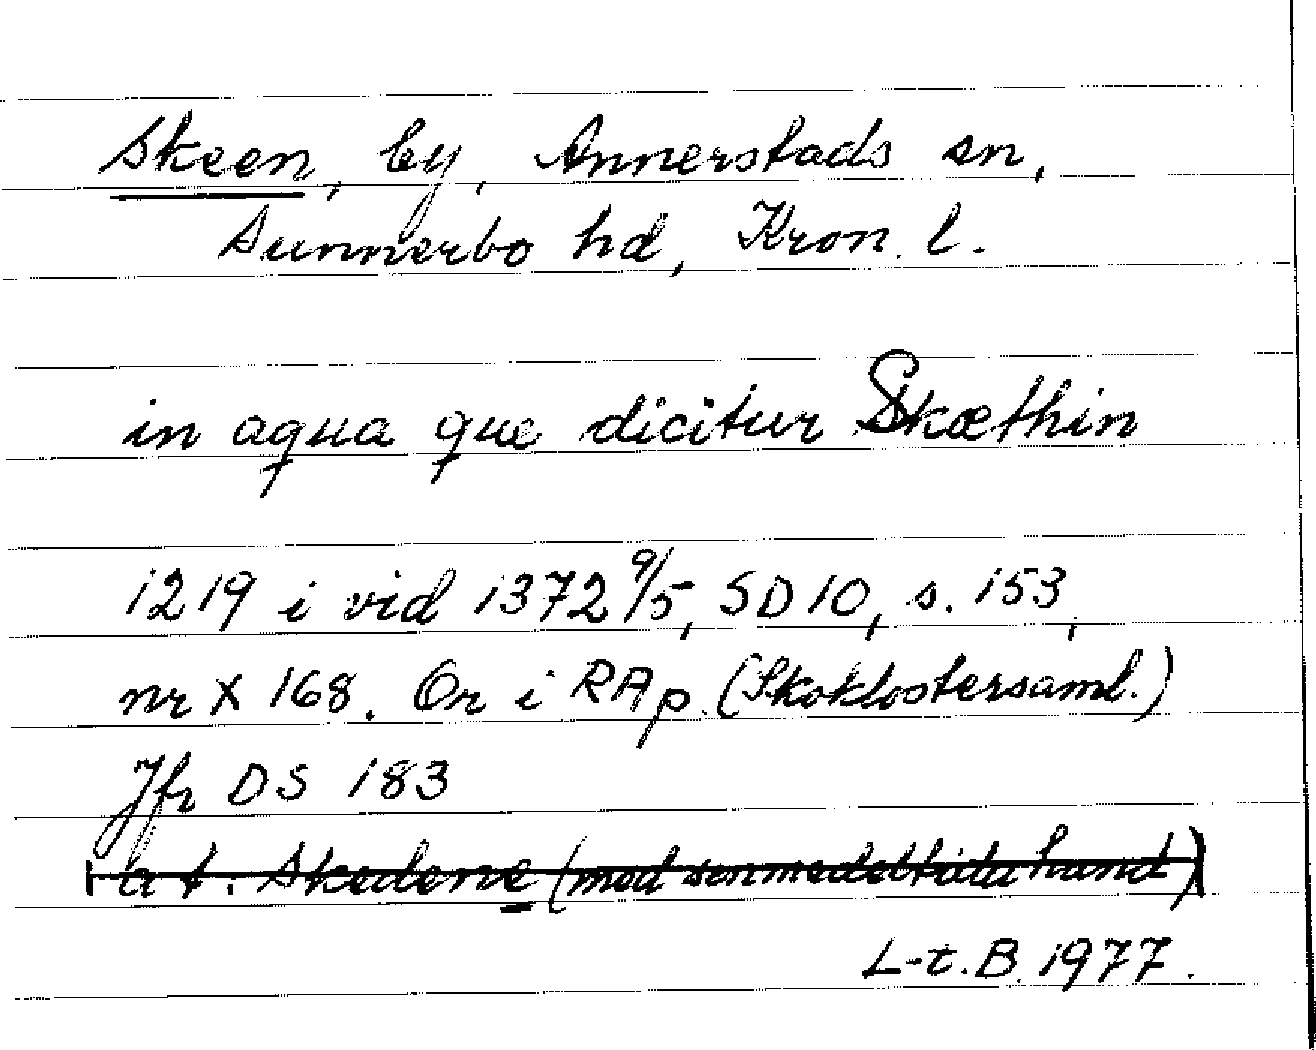 Skeen, by, Annerstads sn,
Sunnerbo hd, Kron. l.
in aqua que dicitur Skæthin
1219 i vid 1372 9/5, SD 10, s. 153,
nr X 168. Or i RAp. (Skoklostersaml.)
Jfr DS 183
a t. Skedene (med senmedeltida hand)
L-t. B. 1977.